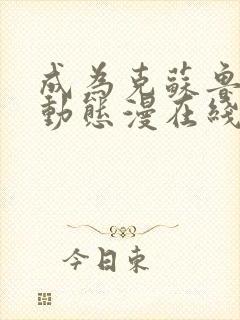 成為克蘇魯
動態漫在綫
今日東